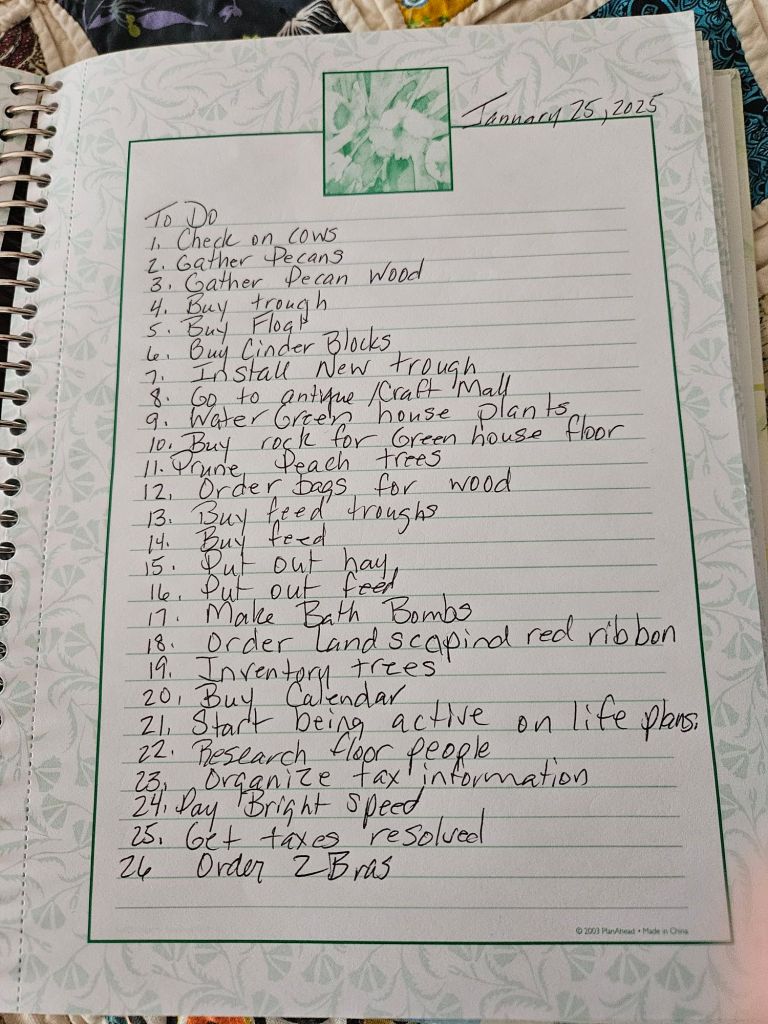 January 25, 2025
To Do
1. Check on cows
2. Gather Pecans
3. Gather Pecan Wood
4. Buy trough
5. Buy Float
6. Buy Cinder Blocks
7. Install New trough
8. Go to antique/Craft Mall
9. Water Green house plants
10. Buy rock for Green house floor
11. Prune Peach trees
12. Order bags for wood
13. Buy feed troughs
14. Buy feed
15. Put out hay
16. Put out feed
17. Make Bath Bombs
18. Order landscapind red ribbon
19. Inventory trees
20. Buy Calendar
21. Start being active on life plans.
22. Research floor people
23. Organize tax information
24. Pay Bright speed
25. Get taxes resolved
26 Order 2 Bras
© 2003 PlanAhead • Made in China